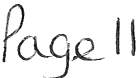 Page 11